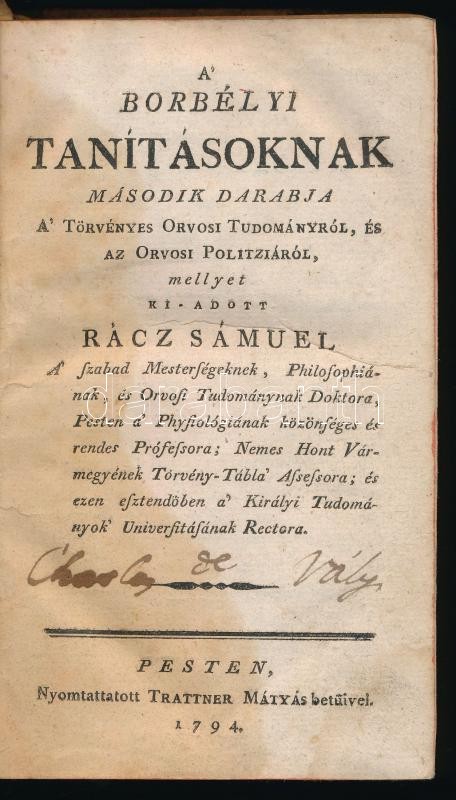 A'
BORBÉLYI
TANÍTÁSOKNAK
MÁSODIK DARABJA
A' TÖRVÉNYES ORVOSI TUDOMÁNYRÓL, ÉS
AZ ORVOSI POLITZIÁRÓL,
mellyet
KI-ADOTT
RÁCZ SÁMUEL
A' ſzabad Mesterſégeknek, Philoſophiá-
nak, és Orvoſi Tudománynak Doktora,
Peſten a' Phyſiológiának közönſéges és
rendes Prófeſſora; Nemes Hont Vár-
megyének Törvény-Tábla' Aſſeſſora; és
ezen eſztendöben a' Királyi Tudomá-
nyok' Univerſitáſának Rectora.
de Vály
PESTEN,
Nyomtattatott TRATTNER MÁTYÁS betűivel.
1794.
darabanth